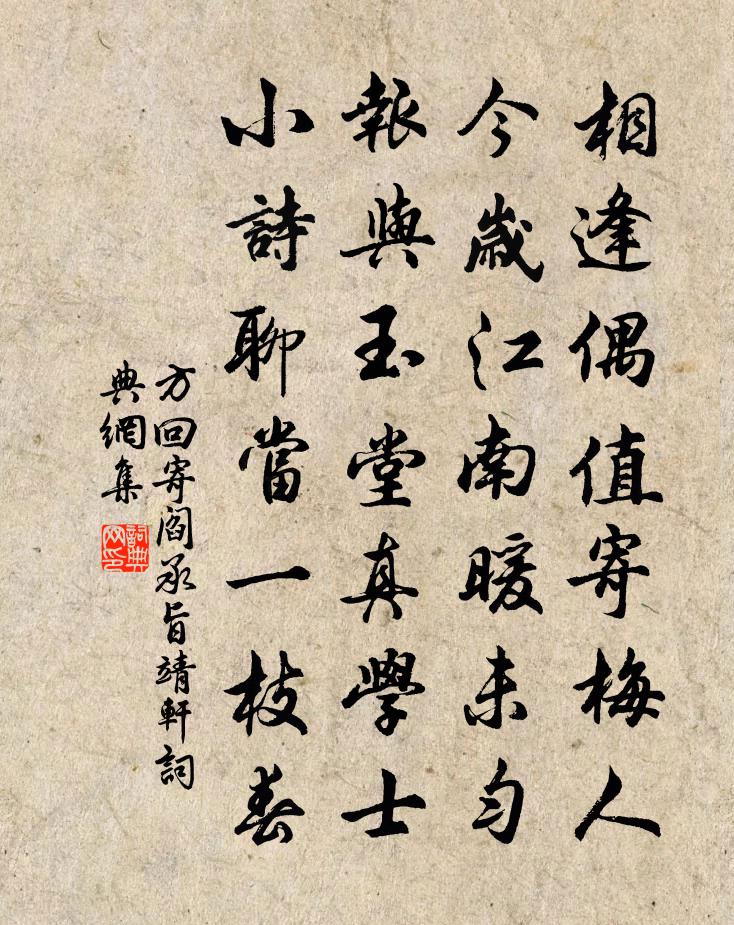 相逢偶值寄梅人
今歲江南暖未勻
報與玉堂真學士
小詩聊當一枝春
方回寄閻承旨靖軒詞
典網集
詞典网印